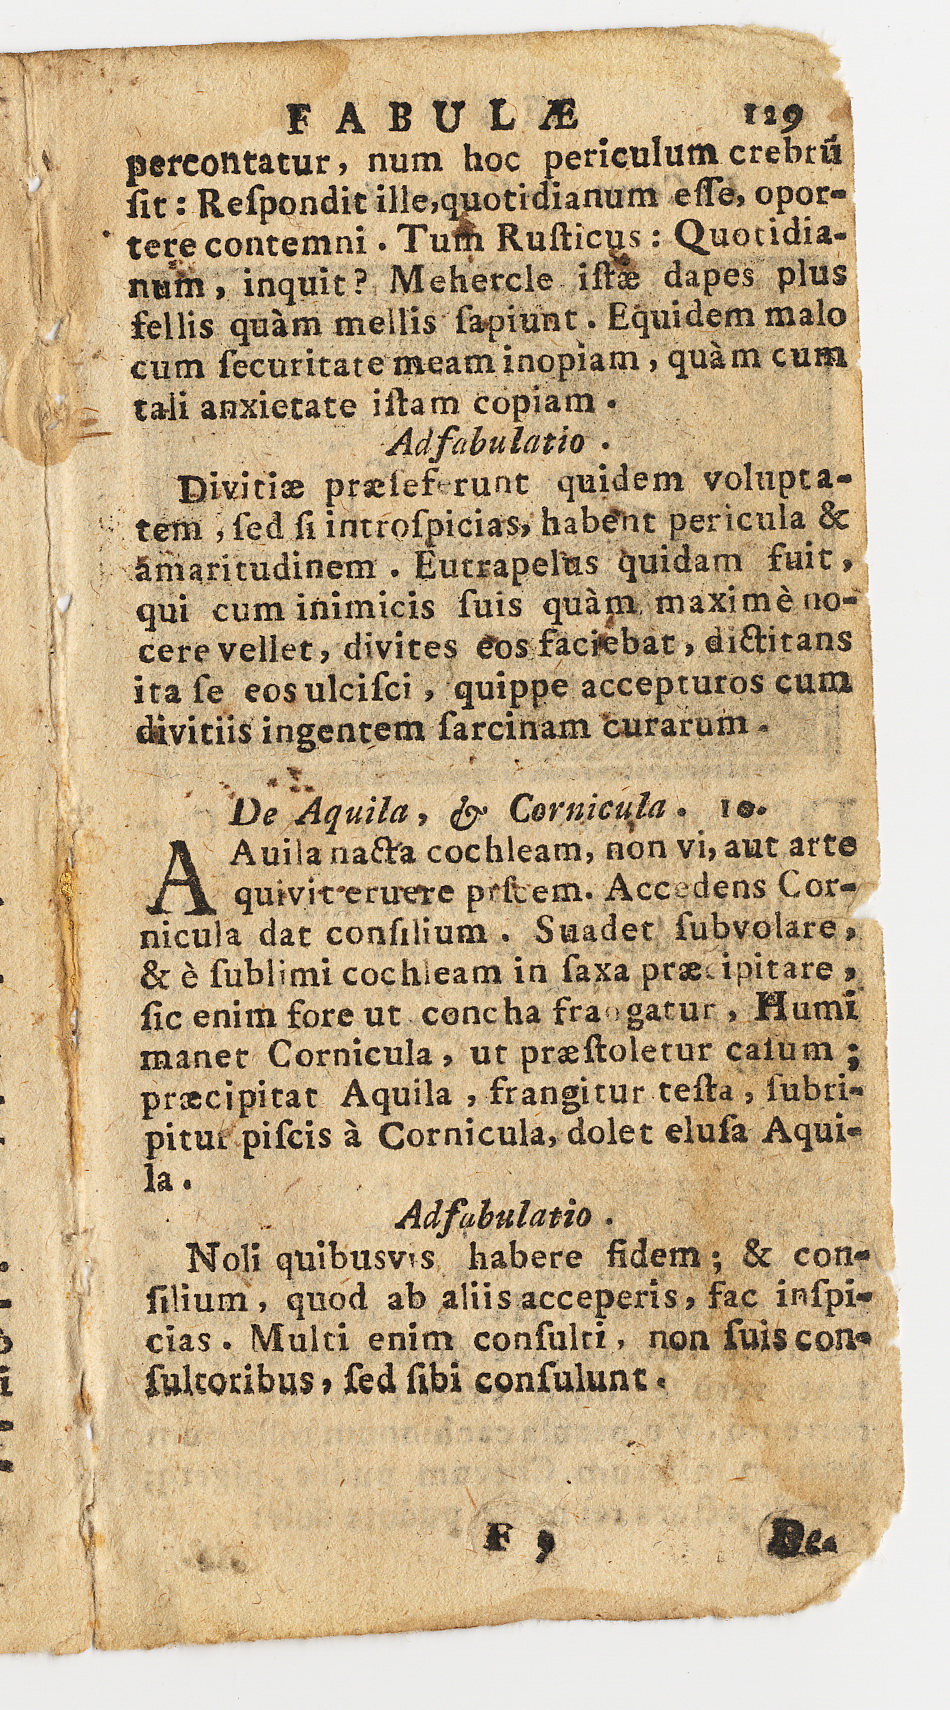 FABULÆ 129
percontatur, num hoc periculum crebrū
ſit: Reſpondit ille, quotidianum eſſe, opor-
tere contemni. Tum Ruſticus: Quotidia-
num, inquit? Mehercle iſtæ dapes plus
fellis quàm mellis ſapiunt. Equidem malo
cum ſecuritate meam inopiam, quàm cum
tali anxietate iſtam copiam.
Adfabulatio.
Divitiæ præſeferunt quidem volupta-
tem, ſed ſi introſpicias, habent pericula &
amaritudinem. Eutrapelus quidam fuit,
qui cum inimicis ſuis quàm maximè no-
cere vellet, divites eos faciebat, dictitans
ita ſe eos ulciſci, quippe accepturos cum
divitiis ingentem ſarcinam curarum.
De Aquila, & Cornicula. 10.
AAuila nacta cochleam, non vi, aut arte
quivit eruere piſcem. Accedens Cor-
nicula dat conſilium. Suadet ſubvolare,
& è ſublimi cochleam in ſaxa præcipitare,
ſic enim fore ut concha fraogatur, Humi
manet Cornicula, ut præſtoletur caſum;
præcipitat Aquila, frangitur teſta, ſubri-
pitur piſcis à Cornicula, dolet eluſa Aqui-
la.
Adfabulatio.
Noli quibusvis habere fidem; & con-
ſilium, quod ab aliis acceperis, fac inſpi-
cias. Multi enim conſulti, non ſuis con-
ſultoribus, ſed ſibi conſulunt.
F , De.